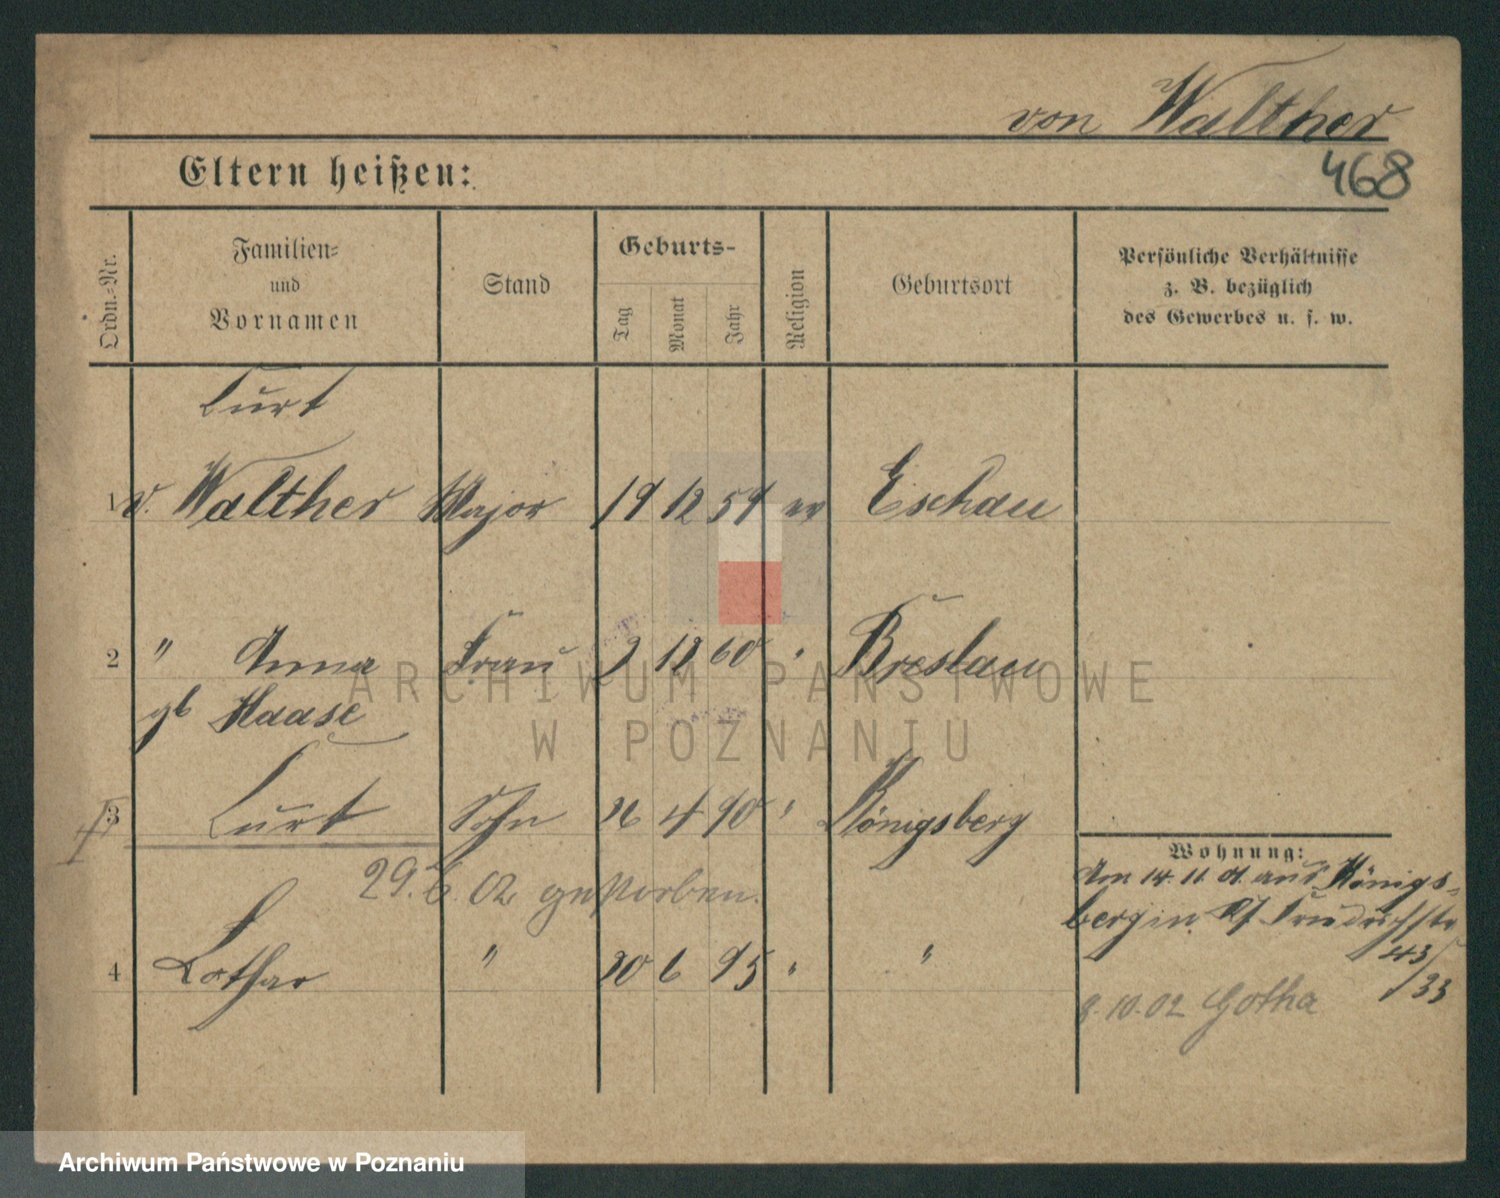 von Walther
468
Eltern heißen:
Ordn.-Nr.
Familien-
und
Vornamen
Stand
Geburts-
Tag
Monat
Jahr
Religion
Geburtsort
Persönliche Verhältnisse
z. B. bezüglich
des Gewerbes u. s. w.
Curt
1 v. Walther Major 19 12 59 ev Eschau
2 " Anna Frau 12 60 " Breslau
gb Haase
3 Curt Sohn 26 4 90 " Königsberg
29. 6. 02 gestorben.
4 Lothar " 30 6 95 " "
Wohnung:
Am 14. 11. 01. aus Königs-
berg in
43/
33
8. 10. 02 Gotha
ARCHIWUM PAŃSTWOWE
W POZNANIU
Archiwum Państwowe w Poznaniu